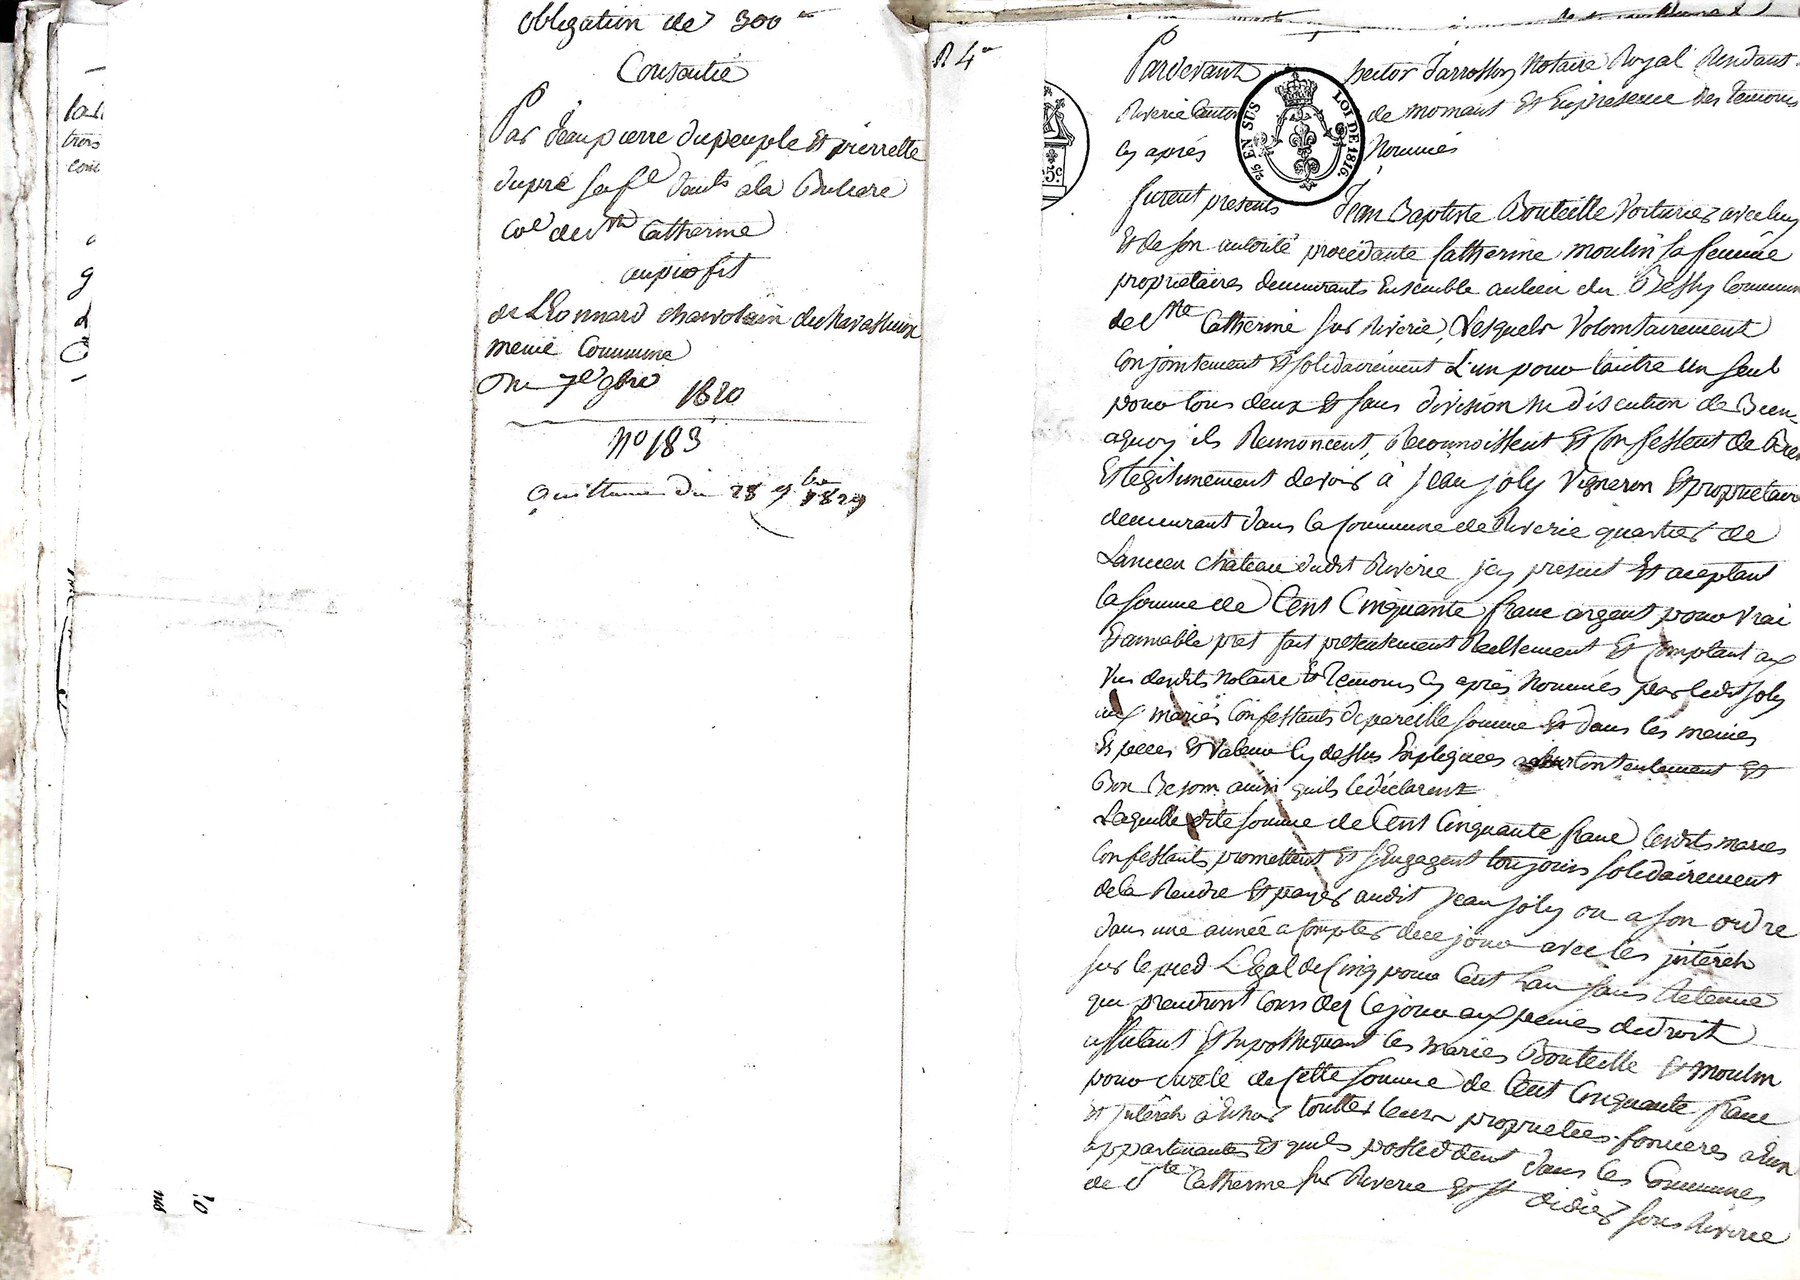 obligation de 300
Consentie
Par Jean pierre dupeuple Et pierrette
dupré sa fe dants à la
Coe de Ste Catherine
au profit
de LEonnard
meme Commune
Du 7e 9bre 1820
No 183
Quittance du 28 9bre 1829
Pardevant hector Jarrosson Notaire Royal Résidant
Riverie Canton de mornant Et En présence des temoins
Cy après Nommés
furent presents Jean Baptiste Bouteille Voiturier avec luy
Et de son autorité procédante Catherine moulin sa femme
propriétaires demeurants Ensemble au lieu du Bessy Commune
de Ste Catherine sur Riverie, Lesquels Volontairement
Conjointement Et solidairement L'un pour l'autre un seul
pour tous deux Et sans division ni discution de Biens
aquoy ils Renoncent, Reconnoissent Et Confessent de Bien
Et légitimement devoir à Jean joly Vigneron Et propriétaire
demeurant dans la Commune de Riverie quartier de
Lancien chateau dudit Riverie icy present Et aceptant
la somme de Cent Cinquante franc argent pour vrai
Et amiable pret fait présentement Reellement Et Comptant aux
Vus desdits Notaire Et Temoins Cy après Nommés par ledit joly
aux mariés Confessants de pareille somme Et dans les memes
Especes Et Valeur Cy dessus Expliquées Contentement Et
Bon Besoin ainsi quils le déclarent
Laquelle dite somme de Cent Cinquante franc lesdits mariés
Confessants promettent Et s'Engagent toujours solidairement
de la Rendre Et payer audit Jean joly ou a son ordre
dans une année a Compter de ce jour avec les intérêts
sur le pied LEgal de Cinq pour Cent L'an sans Retenue
qui prendront Cours des Ce jour aux peines de droit
affectant Et hypothequant les mariés Bouteille Et Moulin
pour sureté de Cette somme de Cent Cinquante franc
Et intérêts à Echoir touttes leurs proprietees foncieres a Eux
appartenantes Et quils possedent dans les Communes
de Ste Catherine sur Riverie Et St didier sous Riverie